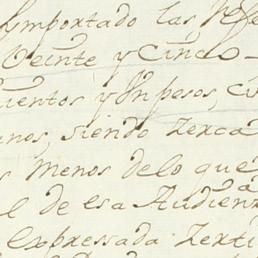 ymportado las, refe
Veinte y Cinco
cientos y Un pesos, ci
anos, siendo Zerca
s Menos delo que
l de esa Audienz
expressada Zerti